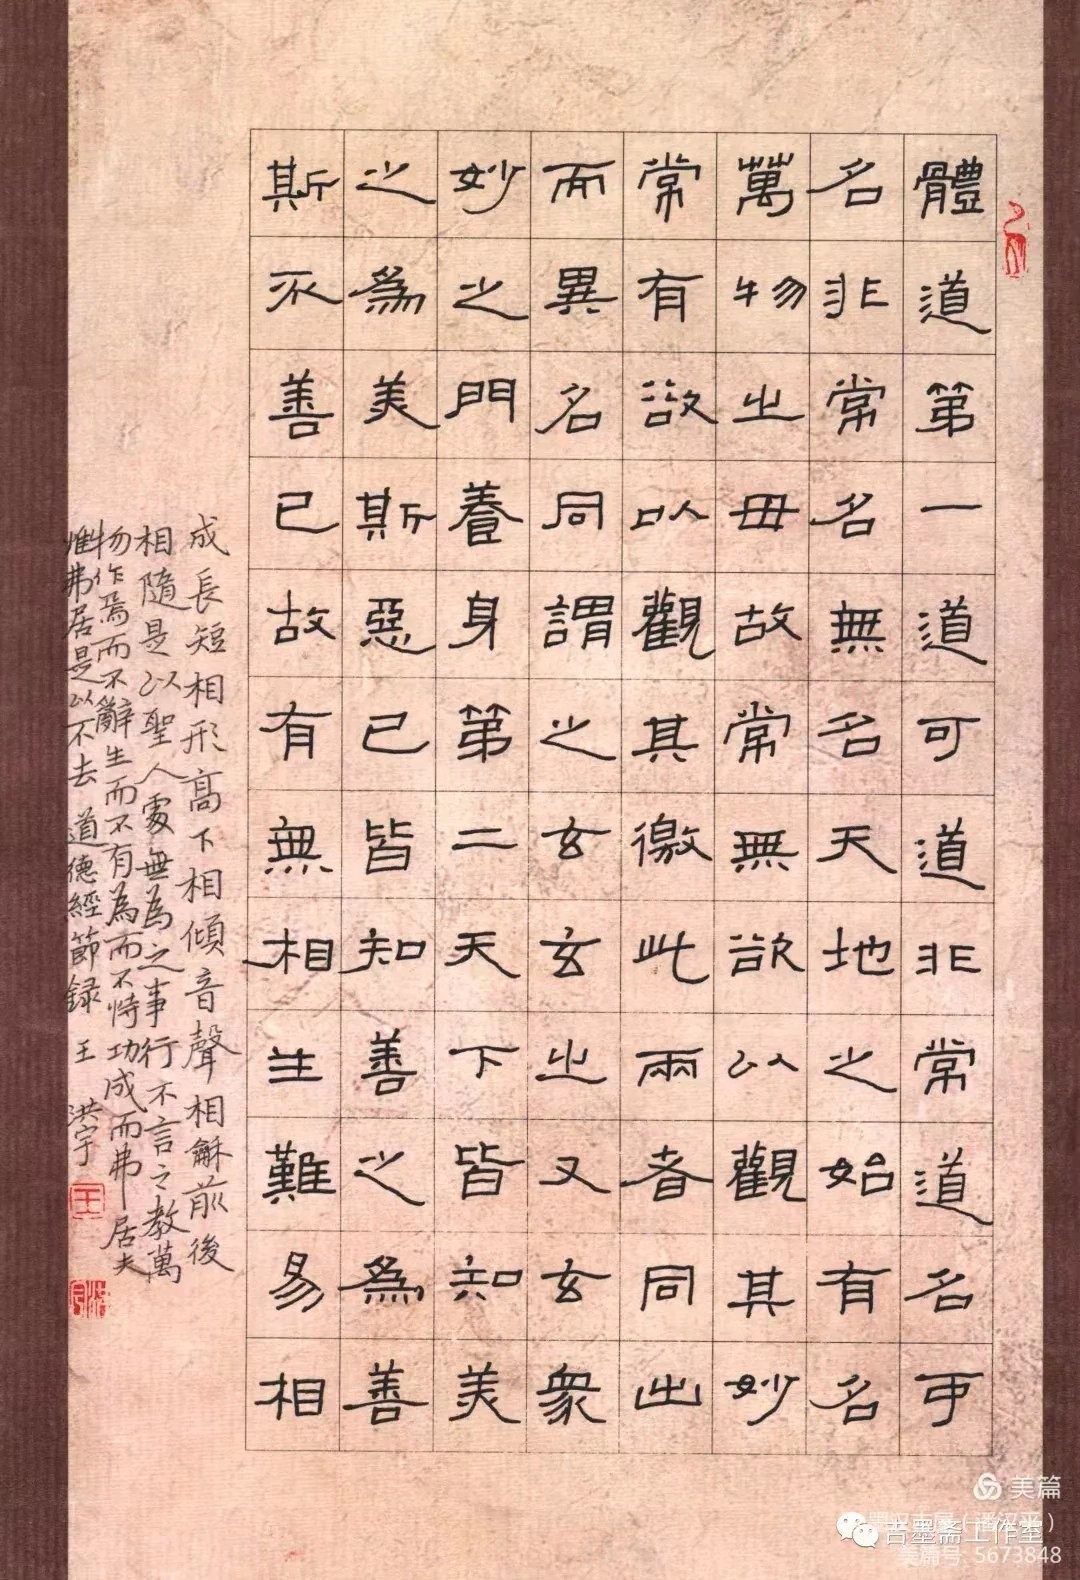 體道第一道可道非常道名可
名非常名無名天地之始有名
萬物之母故常無欲以觀其妙
常有欲以觀其徼此兩者同出
而異名同謂之玄玄之又玄衆
妙之門養身第二天下皆知美
之為美斯惡已皆知善之為善
斯不善已故有無相生難易相
成長短相形高下相傾音聲相龢前後
相隨是以聖人處無為之事行不言之教萬
物作焉而不辭生而不有為而不恃功成而弗居夫
惟弗居是以不去 道德經節録 王洪宇
王
美篇
吉墨斋工作室
美篇号: 5673848